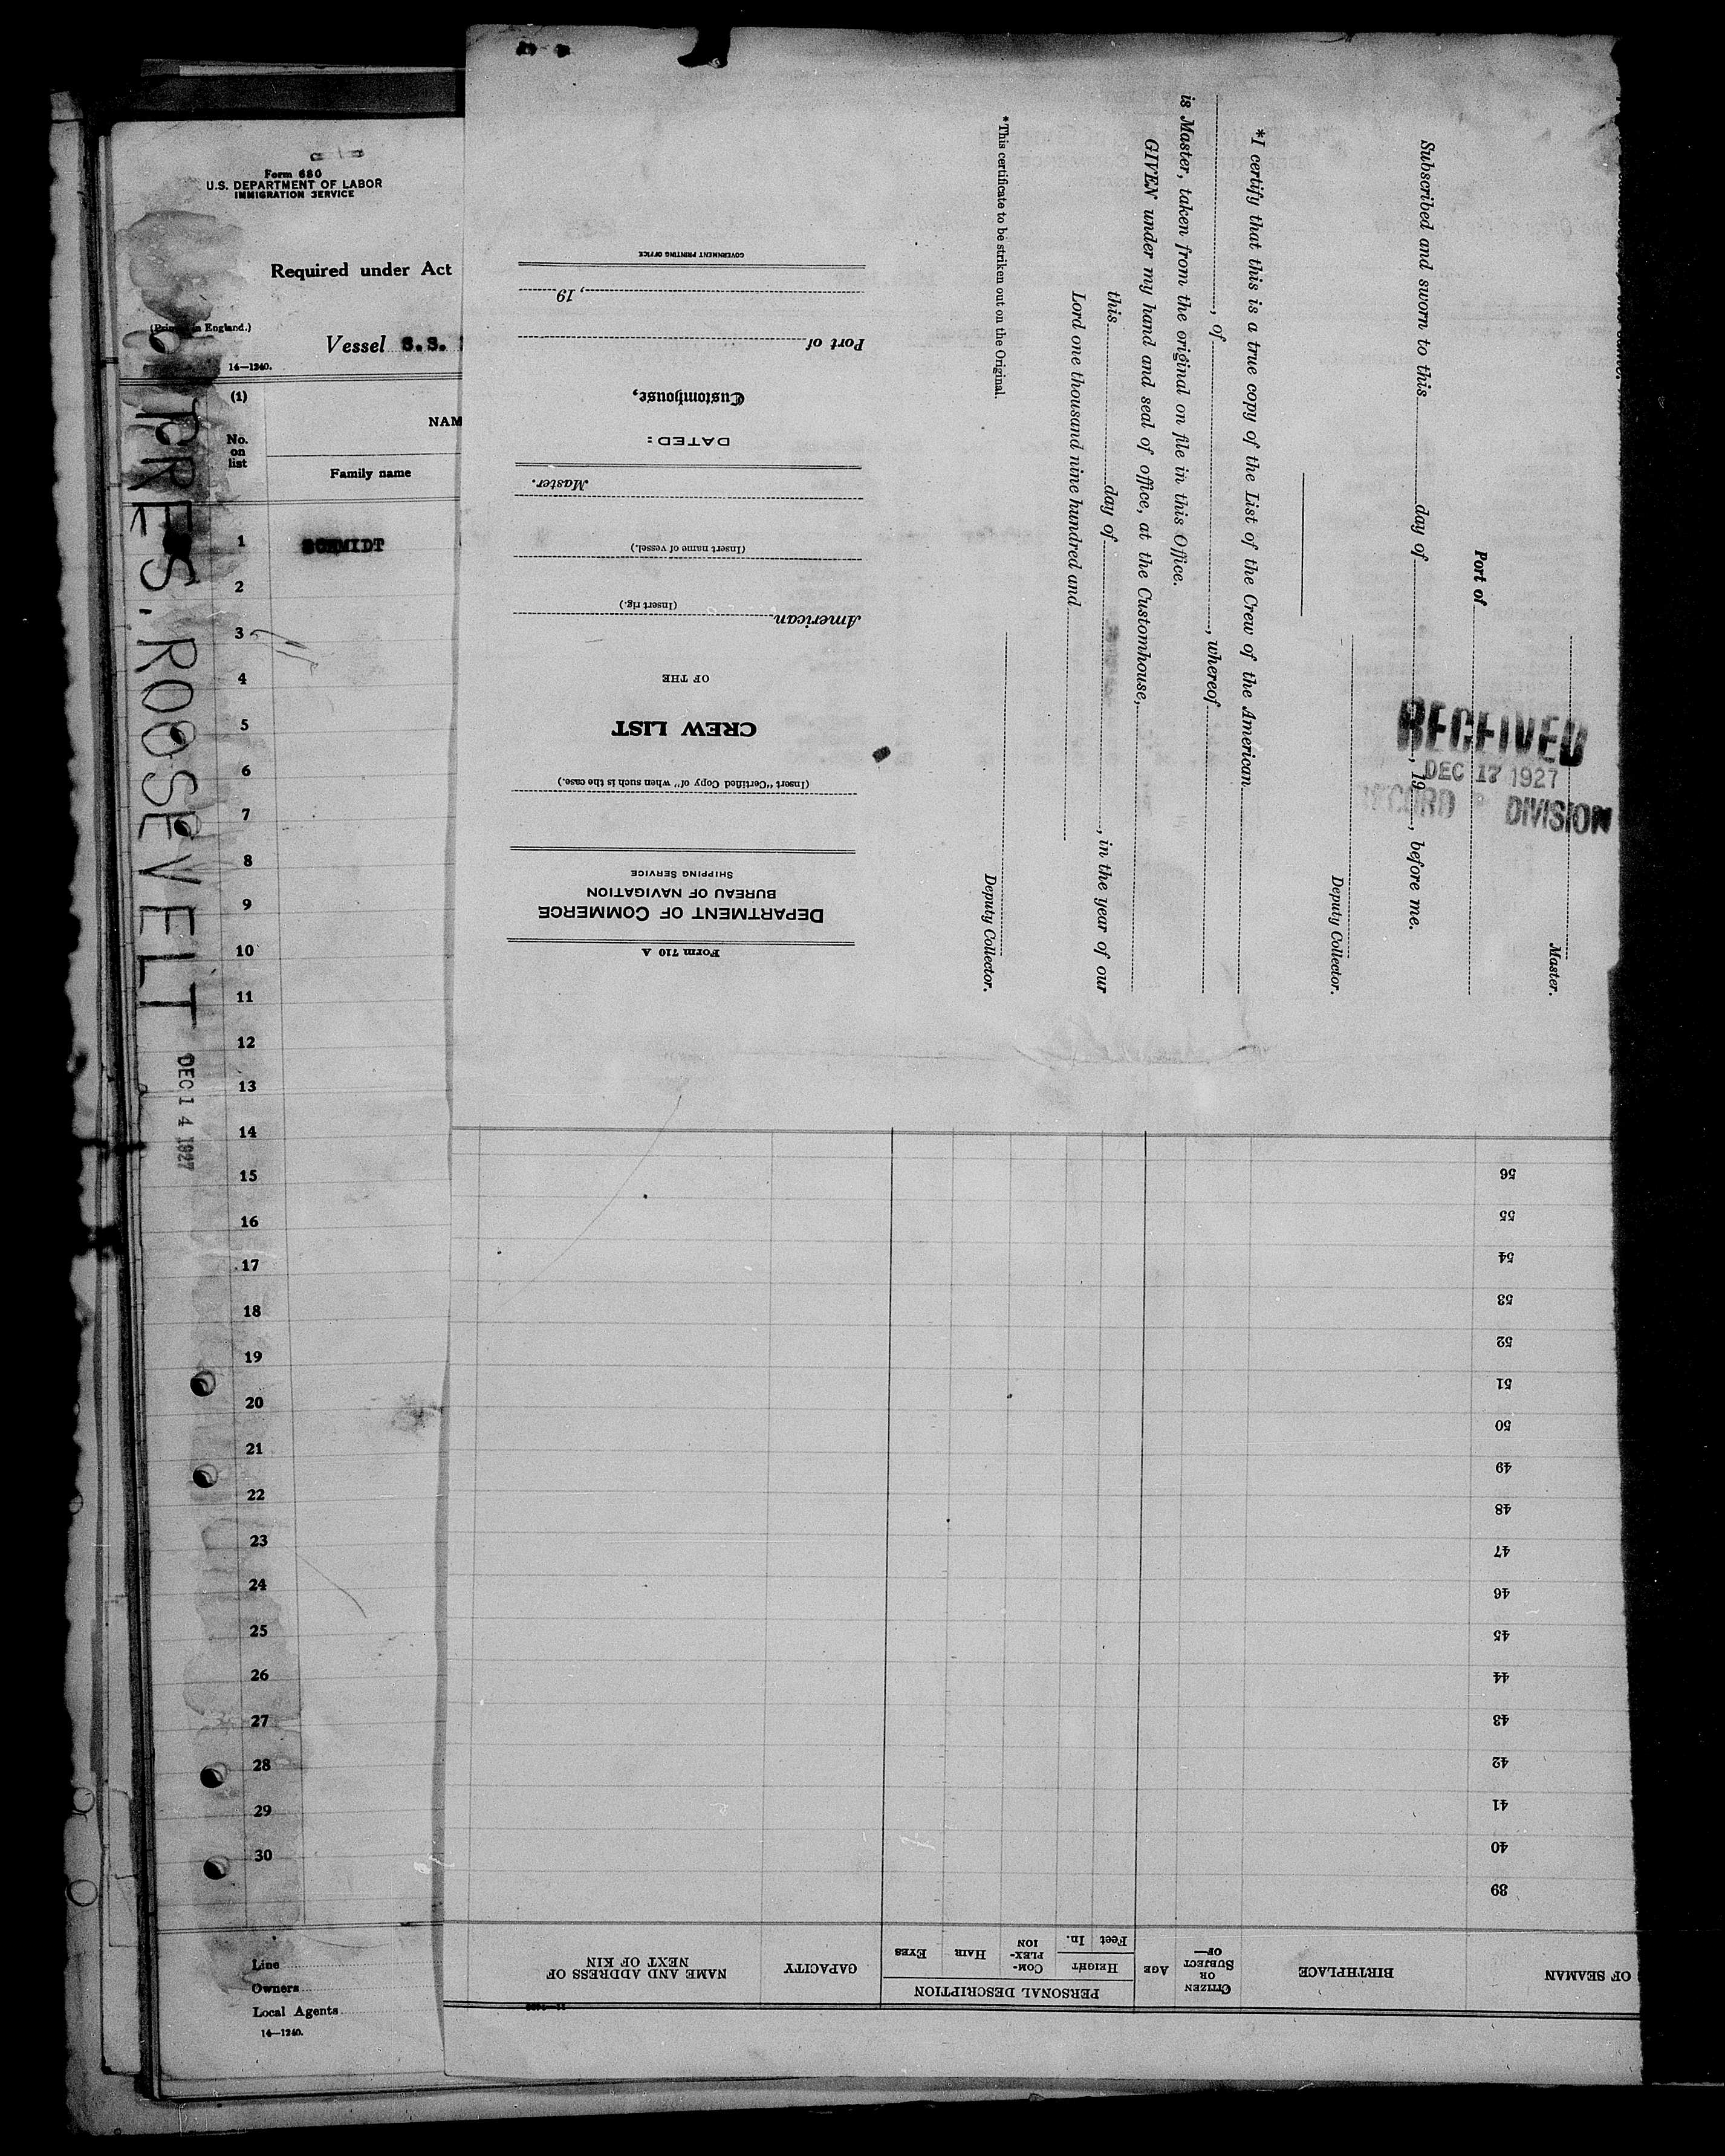 Form 680
U.S. DEPARTMENT OF LABOR
IMMIGRATION SERVICE
Required under Act
(Printed in England.)
Vessel S.S.
14—1240.
(1)
No.
on
list
NAM
Family name
1 SCHMIDT
2
3
4
5
6
7
8
9
10
11
12
13
14
15
16
17
18
19
20
21
22
23
24
25
26
27
28
29
30
Line
Owners
Local Agents
14—1240.
PRES. ROOSEVELT
DEC 14 1927
Form 710 A
DEPARTMENT OF COMMERCE
BUREAU OF NAVIGATION
SHIPPING SERVICE
(Insert "Certified Copy of" when such is the case.)
CREW LIST
OF THE
American
(Insert rig.)
(Insert name of vessel.)
Master.
DATED:
Customhouse,
Port of
, 19
GOVERNMENT PRINTING OFFICE
Master.
Port of
Subscribed and sworn to this day of , 19 , before me.
Deputy Collector.
*I certify that this is a true copy of the List of the Crew of the American
, of , whereof
is Master, taken from the original on file in this Office.
GIVEN under my hand and seal of office, at the Customhouse,
this day of , in the year of our
Lord one thousand nine hundred and
Deputy Collector.
*This certificate to be striken out on the Original.
RECEIVED
DEC 17 1927
RECORD DIVISION
OF SEAMAN
BIRTHPLACE
CITIZEN
OR
SUBJECT
OF—
AGE
PERSONAL DESCRIPTION
HEIGHT
Feet In.
COM-
PLEX-
ION
HAIR
EYES
CAPACITY
NAME AND ADDRESS OF
NEXT OF KIN
39
40
41
42
43
44
45
46
47
48
49
50
51
52
53
54
55
56